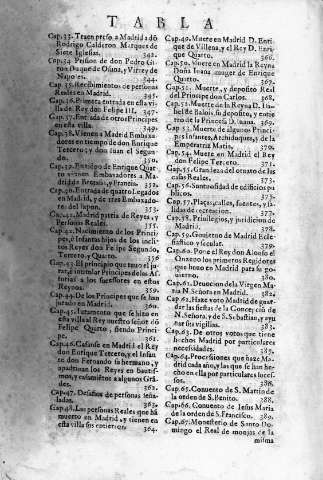 TABLA
Cap.33. Traen preso a Madrid a dō
Rodrigo Calderon Marques de
Siete Iglesias. 342.
Cap.34. Prision de don Pedro Gi-
ron Duque de Osuna, y Virrey de
Napoles. 344.
Cap.35. Recibimientos de personas
Reales en Madrid. 345.
Cap.36. Primera entrada en esta villa
de Rey don Felipe III. 347.
Cap.37. Entrada de otros Principes
en esta villa. 349.
Cap.38. Vienen a Madrid Embaxa
dores en tiempo de don Enrique
Tercero; y don Juan el Segun-
do. 350.
Cap.39. Enrique Quar
to vienen Embaxadores a Ma-
drid de Francia. 352.
Cap.40. Entrada de quatro Legados
en Madrid, y de tres Embaxado-
res del Iapon. 353.
Cap.41. Madrid patria de Reyes, y
Personas Reales. 355.
Cap.42. Nacimientos de los Princi-
pes, è Infantes hijos de los incli-
tos Reyes don Felipe Segundo,
Tercero, y Quarto 356
Cap.43. El Principio que tuvo el ju-
rar, è intitular Principes de las As-
turias a los sucessores en estos
Reynos. 359.
Cap.44. De los Principes que se han
jurado en Madrid. 360.
Cap.45. Iuramento que se hizo en
esta villa al Rey nuestro señor dō
Felipe Quarto, siendo Princi-
pe. 361.
Cap.46. Casanse en Madrid el Rey
don Enrique Tercero, y el Infan
te don Fernando su hermano, y
apadrinan los Reyes en bautis-
mos, y casamientos a algunos Grā-
des. 362.
Cap.47. Desafios de personas seña-
ladas. 363.
Cap.48. Las personas Reales que hā
muerto en Madrid, y tienen en
esta villa sus entierros. 364.
Cap.49. Muere en Madrid D. Enri-
que de Villena, y el Rey D. Enri-
que Quarto. 366.
Cap.50. Muere en Madrid la Reyna
Doña Iuana muger de Enrique
Quarto. 367.
Cap.51. Muerte, y deposito Real
del Principe don Carlos. 368.
Cap.52. Muerte de la Reyna D. Isa-
bel de Balois, su deposito, y entie
rro de la Princesa D. Iuana. 369.
Cap.53. Muerte de algunos Princi-
pes Infantes, Archiduques, y de la
Emperatriz Maria. 370.
Cap.54. Muere en Madrid el Rey
don Felipe Tercero. 371.
Cap.55. Grandeza del ornato de las
casas Reales. 373.
Cap.56. Suntuosidad de edificios pu-
blicos. 375.
Cap.57. Plaças, calles, fuentes, y sa-
lidas de recreacion. 377.
Cap.58. Privilegios, y juridicion de
Madrid. 378.
Cap.59. Govierno de Madrid Ecle-
siastico y secular. 379.
Cap.60. Pone el Rey don Alonso el
Onzeno los primeros Regidores
que huvo en Madrid para su go-
vierno. 380.
Cap.61. Devocion de la Virgen Ma-
ria N. Señora en Madrid. 382.
Cap.62. Haze voto Madrid de guar-
dar las fiestas de la Concepcion de
N. Señora, y de S. Sebastian, y ayu-
nar sus vigilias. 383.
Cap.63. De otros votos que tiene
hechos Madrid por particulares
necessidades. 385.
Cap.64. Processiones que haze Ma-
drid cada año, y las que se han he-
cho en ella por particulares suces-
sos. 388.
Cap.65. Convento de S. Martin de
la orden de S. Benito. 388.
Cap.66. Convento de Iesus Maria
de la orden de S. Francisco. 389.
Cap.67. Monesterio de Santo Do-
mingo el Real de monjas de la
misma